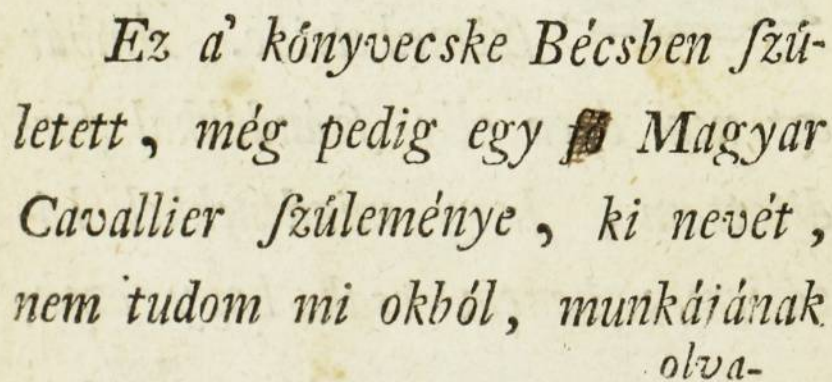 Ez a' kőnyvecske Bécsben ſzű-
letett, még pedig egy Magyar
Cavallier ſzűleménye, ki nevét,
nem tudom mi okból, munkájának
olva-